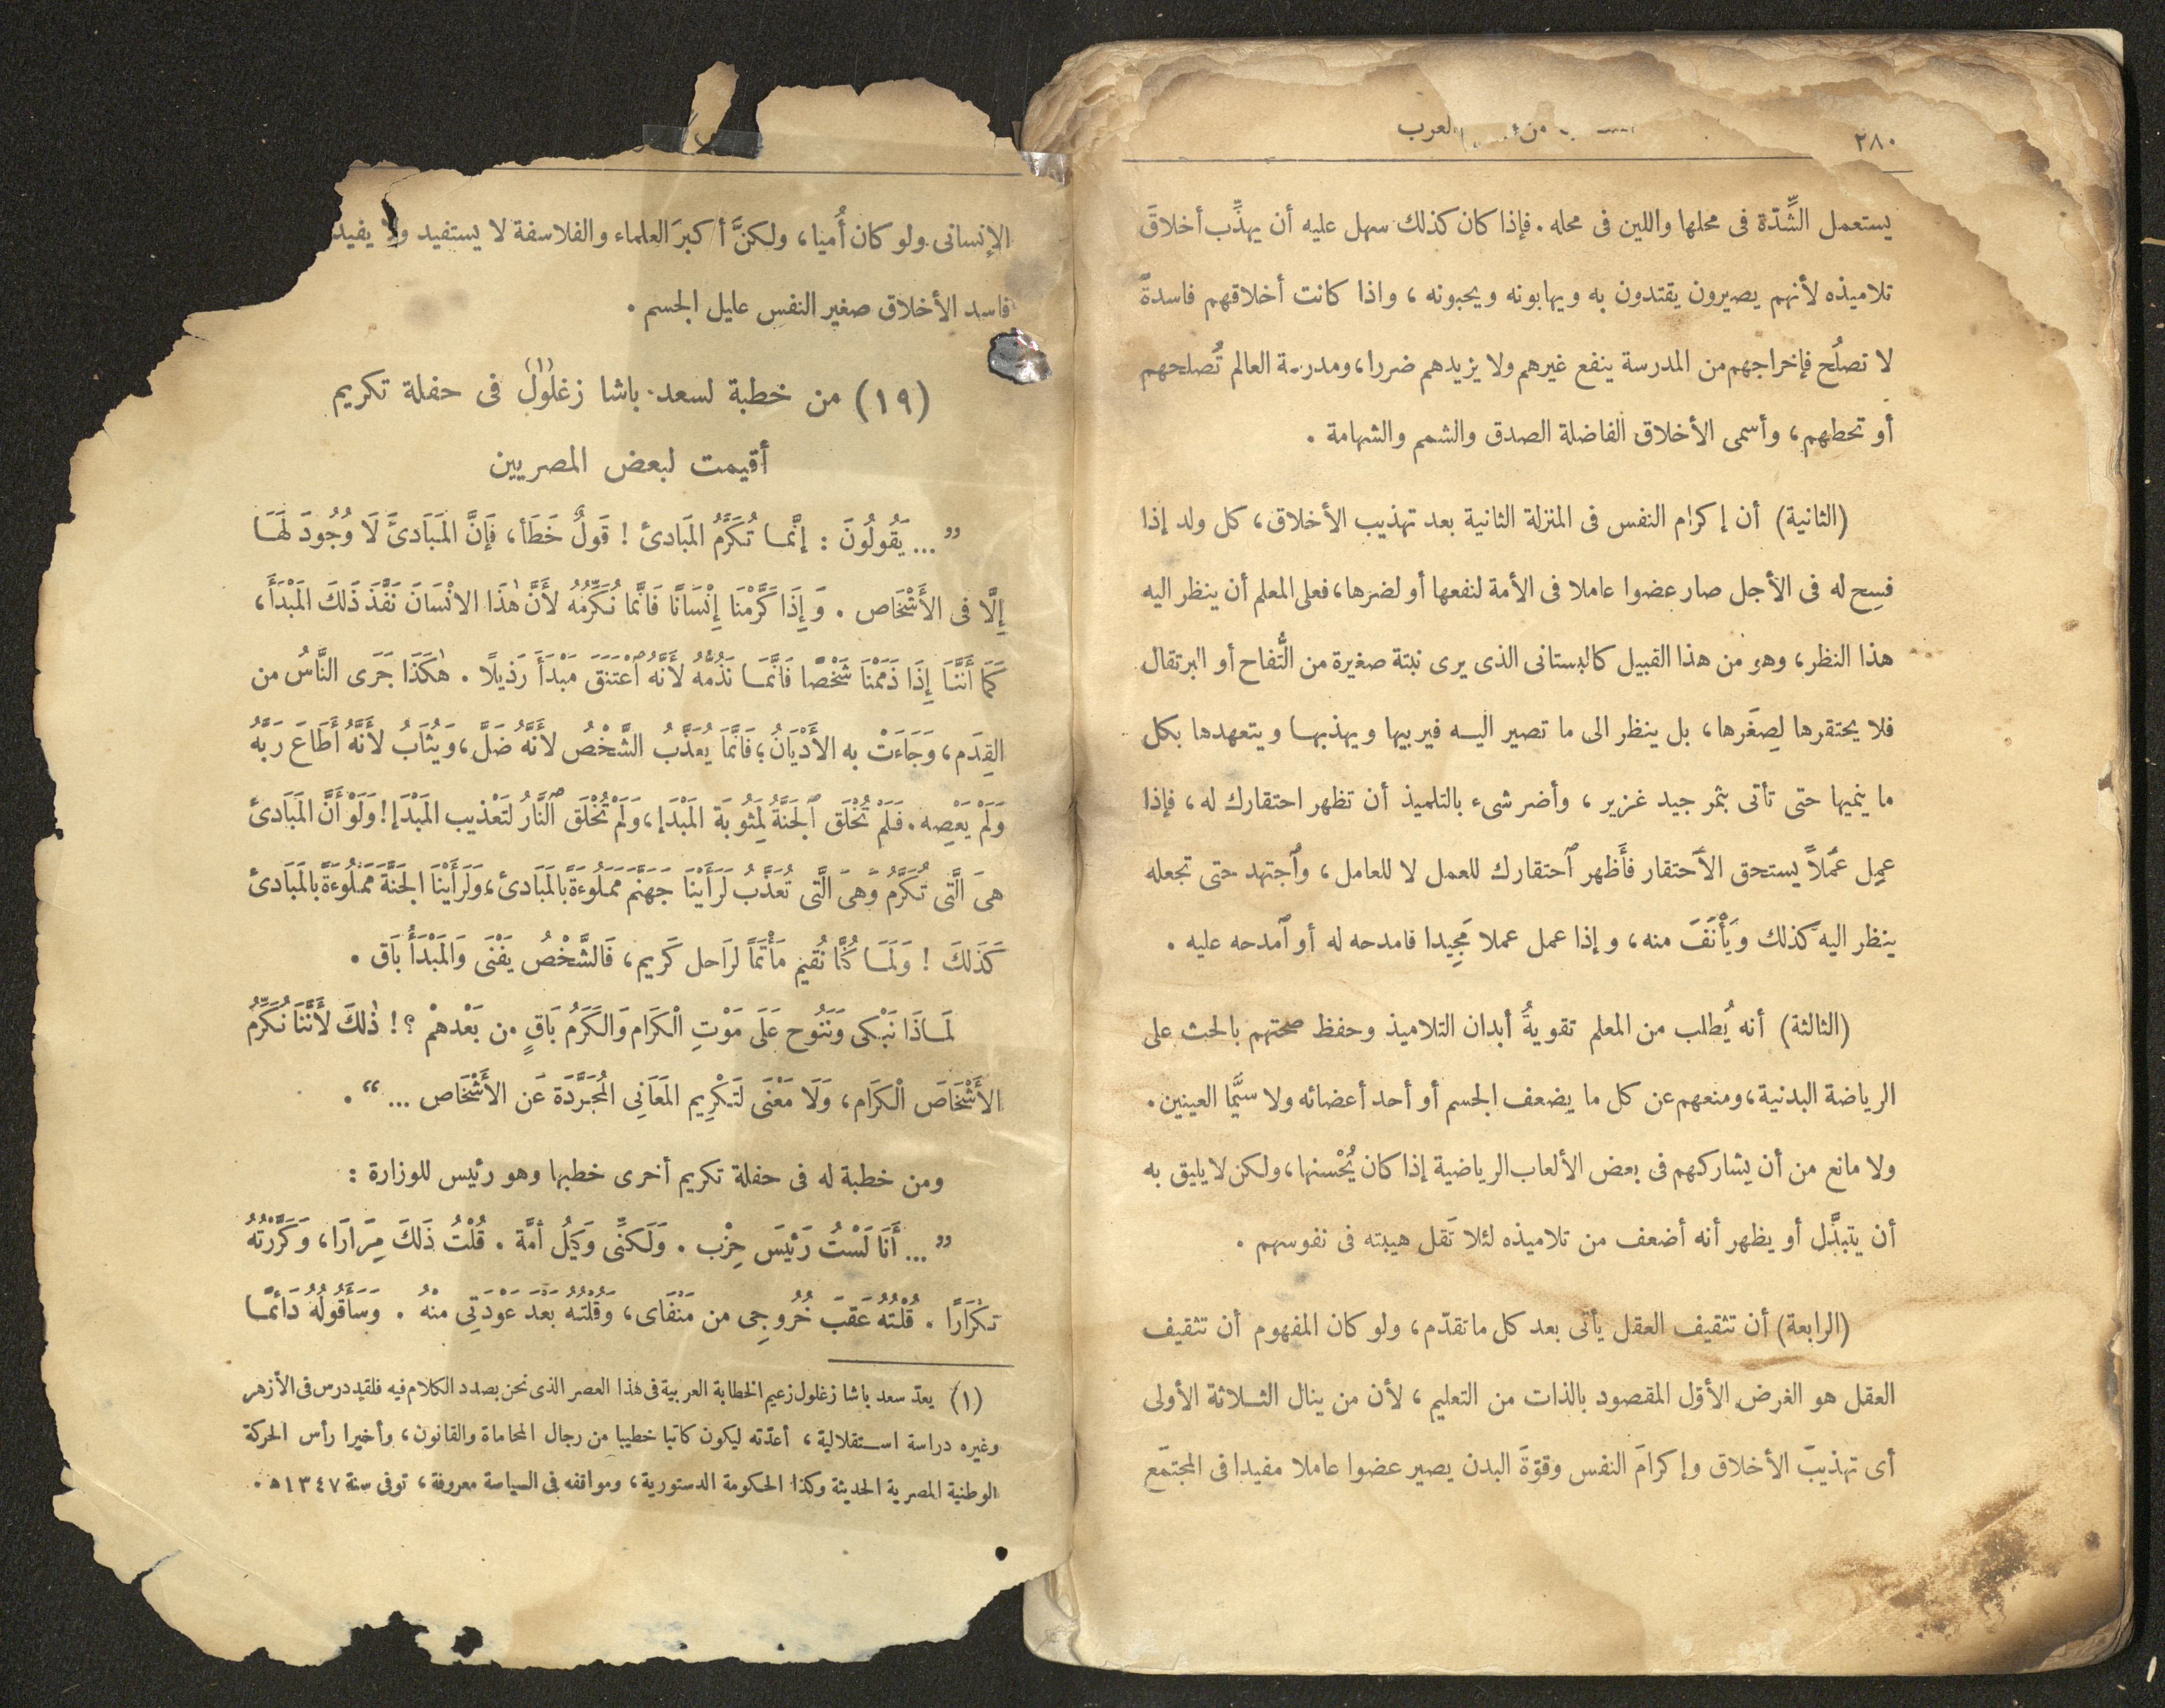 ٢٨٠
من
العرب
يستعمل الشِّدّة فى محلها واللين فى محله . فإذا كان كذلك سهل عليه أن يهذِّب أخلاقَ
تلاميذه لأنهم يصيرون يقتدون به ويهابونه ويحبونه ، واذا كانت أخلاقهم فاسدةً
لا تصلُح فإخراجهم من المدرسة ينفع غيرهم ولا يزيدهم ضررا ، ومدرسة العالم تُصلحهم
أو تحطهم ، وأسمى الأخلاق الفاضلة الصدق والشمم والشهامة .
(الثانية) أن إكرام النفس فى المنزلة الثانية بعد تهذيب الأخلاق ، كل ولد إذا
فسِح له فى الأجل صار عضوا عاملا فى الأمة لنفعها أو لضرها ، فعلى المعلم أن ينظر اليه
هذا النظر ، وهو من هذا القبيل كالبستانى الذى يرى نبتة صغيرة من التُّفاح أو البرتقال
فلا يحتقرها لِصِغَرها ، بل ينظر الى ما تصير اليه فيربيها ويهذبها ويتعهدها بكل
ما ينميها حتى تأتى بثمر جيد غزير ، وأضر شىء بالتلميذ أن تظهر احتقارك له ، فإذا
عمِل عَملاً يستحق الآحتقار فأَظهر ٱحتقارك للعمل لا للعامل ، وٱجتهد حتى تجعله
ينظر اليه كذلك ويَأْنَفَ منه ، وإذا عمل عملا مَجِيدا فامدحه له أو ٱمدحه عليه .
(الثالثة) أنه يُطلب من المعلم تقويةُ أبدان التلاميذ وحفظ صحتهم بالحث على
الرياضة البدنية ، ومنعهم عن كل ما يضعف الجسم أو أحد أعضائه ولا سيَّما العينين .
ولا مانع من أن يشاركهم فى بعض الألعاب الرياضية إذا كان يُحْسنها ، ولكن لا يليق به
أن يتبذَّل أو يظهر أنه أضعف من تلاميذه لئلا تَقل هيبته فى نفوسهم .
(الرابعة) أن تثقيف العقل يأتى بعد كل ما تقدّم ، ولو كان المفهوم أن تثقيف
العقل هو الغرض الأوّل المقصود بالذات من التعليم ، لأن من ينال الثلاثة الأولى
أى تهذيبَ الأخلاق وإكرامَ النفس وقوّةَ البدن يصير عضوا عاملا مفيدا فى المجتمَع
الإنسانى ولو كان أُميا ، ولكنَّ أكبرَ العلماء والفلاسفة لا يستفيد ولا يفيد
فاسد الأخلاق صغير النفس عليل الجسم .
(١٩) من خطبة لسعد باشا زغلول (١) فى حفلة تكريم
أقيمت لبعض المصريين
” ... يَقُولُونَ : إنَّما تُكَرَّمُ المَبَادئ ! قَولٌ خَطَأ ، فَإنَّ المَبَادئَ لَا وُجُودَ لَهَا
إلَّا فى الأَشْخَاص . وَإِذَا كَرَّمْنَا إِنْسَانًا فَانَّما نُكَرِّمُهُ لأَنَّ هٰذَا الانْسَانَ نَفَّذَ ذَلكَ المَبْدَأَ ،
كَمَا أَنَّنَا إِذَا ذَمَمْنَا شَخْصًا فَانَّمَا نَذُمُّهُ لأَنَّهُ ٱعْتَنَقَ مَبْدَأَ رَذيلًا . هٰكَذَا جَرَى النَّاسُ من
القِدَم ، وَجَاءَتْ به الأَدْيَانُ ؛ فَانَّمَا يُعَذَّبُ الشَّخْصُ لأَنَّهُ ضَلَّ ، وَيُثَابُ لأَنَّهُ أَطَاعَ رَبَّهُ
وَلَمْ يَعْصِه . فَلَمْ تُخْلَق ٱلْجَنَّةُ لِمَثُوبَة المَبْدَإ ، وَلَمْ تُخْلَق ٱلنَّارُ لتَعْذيب المَبْدَإ ! وَلَوْ أَنَّ المَبَادئَ
هىَ الَّتى تُكَرَّمُ وَهىَ الَّتى تُعَذَّبُ لَرَأَيْنَا جَهَنَّمَ مَمْلُوءَةً بالمَبَادئ ، وَلَرَأَيْنَا الجَنَّةَ مَمْلُوءَةً بالمَبَادئ
كَذَلكَ ! وَلَمَا كُنَّا نُقيم مَأْتَمًا لرَاحل كَريم ، فَالشَّخْصُ يَفْنَى وَالمَبْدَأُ بَاق .
لمَاذَا نَبْكى وَنَنُوح عَلَى مَوْتِ الْكرَام وَالكَرَمُ بَاقٍ من بَعْدهمْ ؟ ! ذٰلكَ لأَنَّنَا نُكَرِّمُ
الأَشْخَاصَ الْكرَام ، وَلَا مَعْنَى لتَكْرِيم المَعَانِى المُجَرَّدَة عَن الأَشْخَاص ... “ .
ومن خطبة له فى حفلة تكريم أخرى خطبها وهو رئيس للوزارة :
” ... أَنَا لَسْتُ رَئيسَ حِزْب . وَلَكنِّى وَكيلُ أمَّة . قُلْتُ ذَلكَ مِرَارًا ، وَكَرَّرْتُهُ
تكْرَارًا . قُلْتُهُ عَقبَ خُرُوجِى من مَنْفَاى ، وَقُلْتُهُ بَعْدَ عَوْدَتِى منْهُ . وَسَأَقُولُهُ دَائمًا
(١) يعدّ سعد باشا زغلول زعيم الخطابة العربية فى هذا العصر الذى نحن بصدد الكلام فيه فلقد درس فى الأزهر
وغيره دراسة استقلالية ، أعدّته ليكون كاتبا خطيبا من رجال المحاماة والقانون ، وأخيرا رأس الحركة
الوطنية المصرية الحديثة وكذا الحكومة الدستورية ، ومواقفه فى السياسة معروفة ، توفى سنة ١٣٤٧ ه .